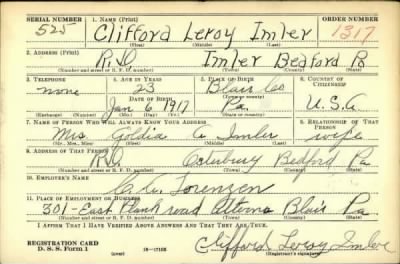 SERIAL NUMBER 1. NAME (Print) ORDER NUMBER
525 Clifford Leroy Imler 1317
(First) (Middle) (Last)
2. ADDRESS (Print)
R.D. Imler Bedford Pa
(Number and street or R. F. D. number) (Town) (County) (State)
3. TELEPHONE 4. AGE IN YEARS 5. PLACE OF BIRTH 6. COUNTRY OF CITIZENSHIP
none 23 Blair Co
(Town or county)
DATE OF BIRTH
Jan 6 1917 Pa. U.S.A
(Exchange) (Number) (Mo.) (Day) (Yr.) (State or country)
7. NAME OF PERSON WHO WILL ALWAYS KNOW YOUR ADDRESS 8. RELATIONSHIP OF THAT PERSON
Mrs Goldia Imler wife
(Mr., Mrs., Miss) (First) (Middle) (Last)
9. ADDRESS OF THAT PERSON
RD Osterburg Bedford Pa
(Number and street or R. F. D. number) (Town) (County) (State)
10. EMPLOYER'S NAME
Sorenzen
11. PLACE OF EMPLOYMENT OR BUSINESS
301-East Plank road Altoona Blair Pa
(Number and street or R. F. D. number) (Town) (County) (State)
I AFFIRM THAT I HAVE VERIFIED ABOVE ANSWERS AND THAT THEY ARE TRUE.
REGISTRATION CARD
D. S. S. Form 1 (over) Clifford Leroy Imler
(Registrant's signature)